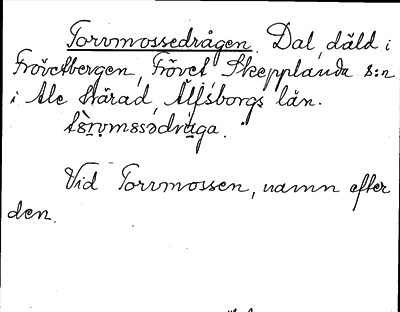 Torvmossedrågen. Dal, däld i
Frövetbergen, Frövet, Skepplanda s:n
i Ale härad, Älfsborgs län.
Vid Torvmossen, namn efter
den.